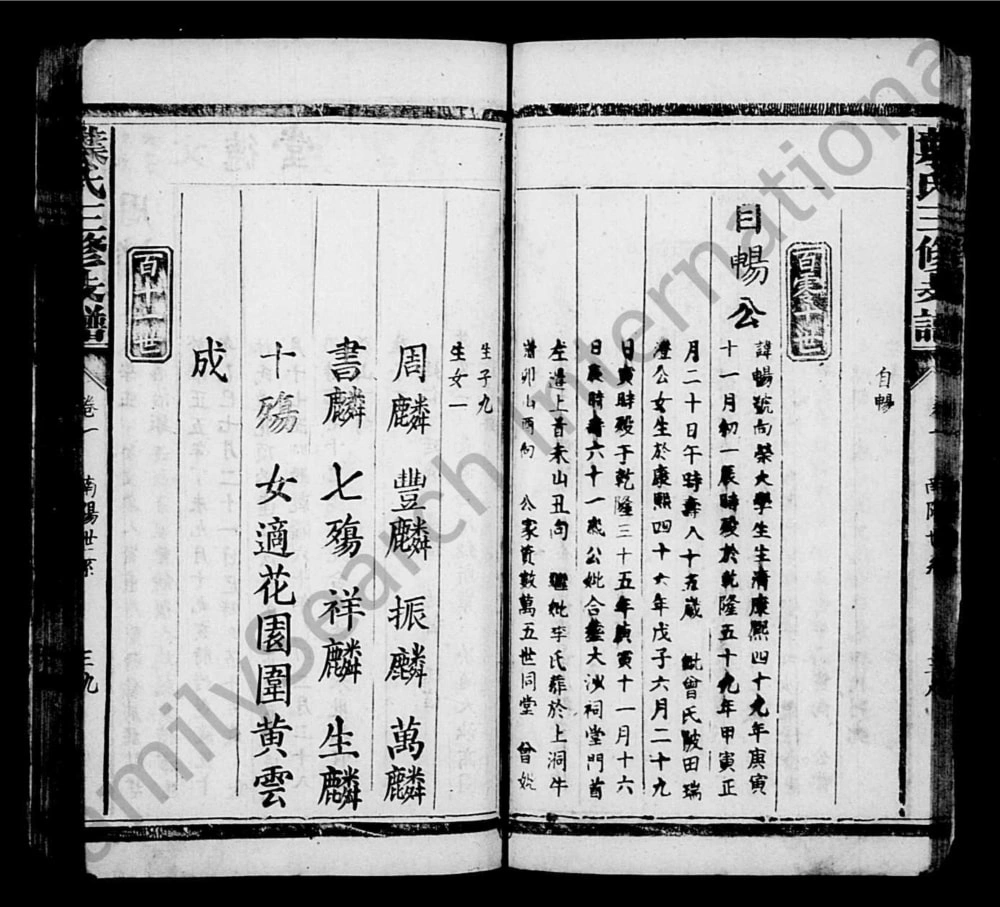 葉氏三修支譜
卷一
南陽世系
自暢
百零十世
自暢公
諱暢號尚榮大學生生清康熙四十九年庚寅
十一月初一辰時歿於乾隆五十九年甲寅正
月二十日午時壽八十五歲 妣曾氏陂田瑞
澄公女生於康熙四十七年戊子六月二十九
日寅時歿于乾隆三十五年庚寅十一月十六
日辰時壽六十一歲公妣合葬大沙祠堂門首
左邊上首未山丑向 妣李氏葬於上洞牛
卯山酉向 公家資數萬五世同堂 曾妣
生子九
生女一
周麟 豐麟 振麟 萬麟
書麟 七殤 祥麟 生麟
十殤 女適花園圍黃雲
成
百十一世
葉氏三修支譜
卷一
南陽世系
三九
FamilySearch International